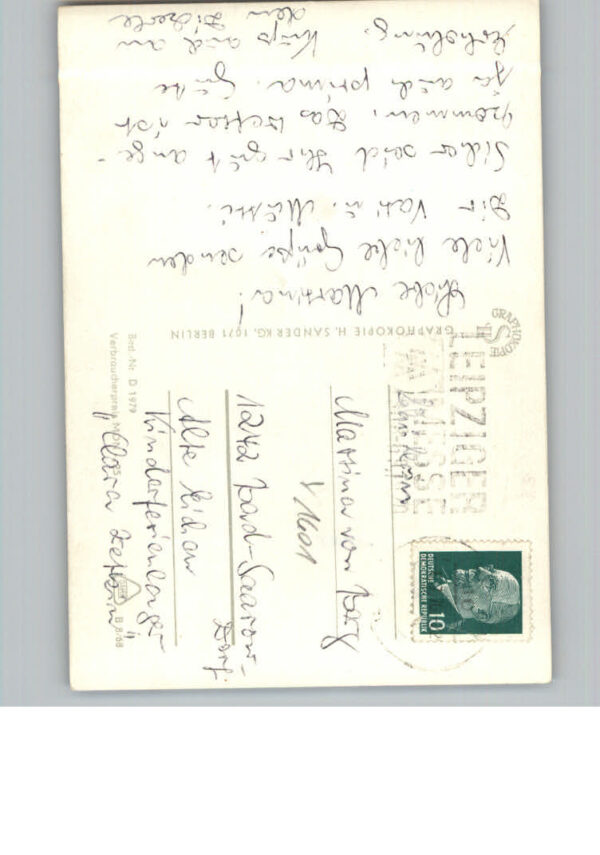 Liebe Martina!
Viele liebe Grüße senden
Dir Vati u. Mutti.
Sicher seid Ihr gut ange-
kommen. Das Wetter ist
ja auch prima. Gute
Erholung. Kuß auch an
den
GRAPHOKOPIE
GRAPHOKOPIE H. SANDER KG, 1071 BERLIN
LEIPZIGER
MESSE
DEUTSCHE
DEMOKRATISCHE REPUBLIK
10
Martina von
1242 Bad-Saarow-
Dorf
Alte Eichen
Kinderferienlager
„Clara Zetkin“
Best.-Nr. D 1979
Verbraucherpreis M
B 8/68